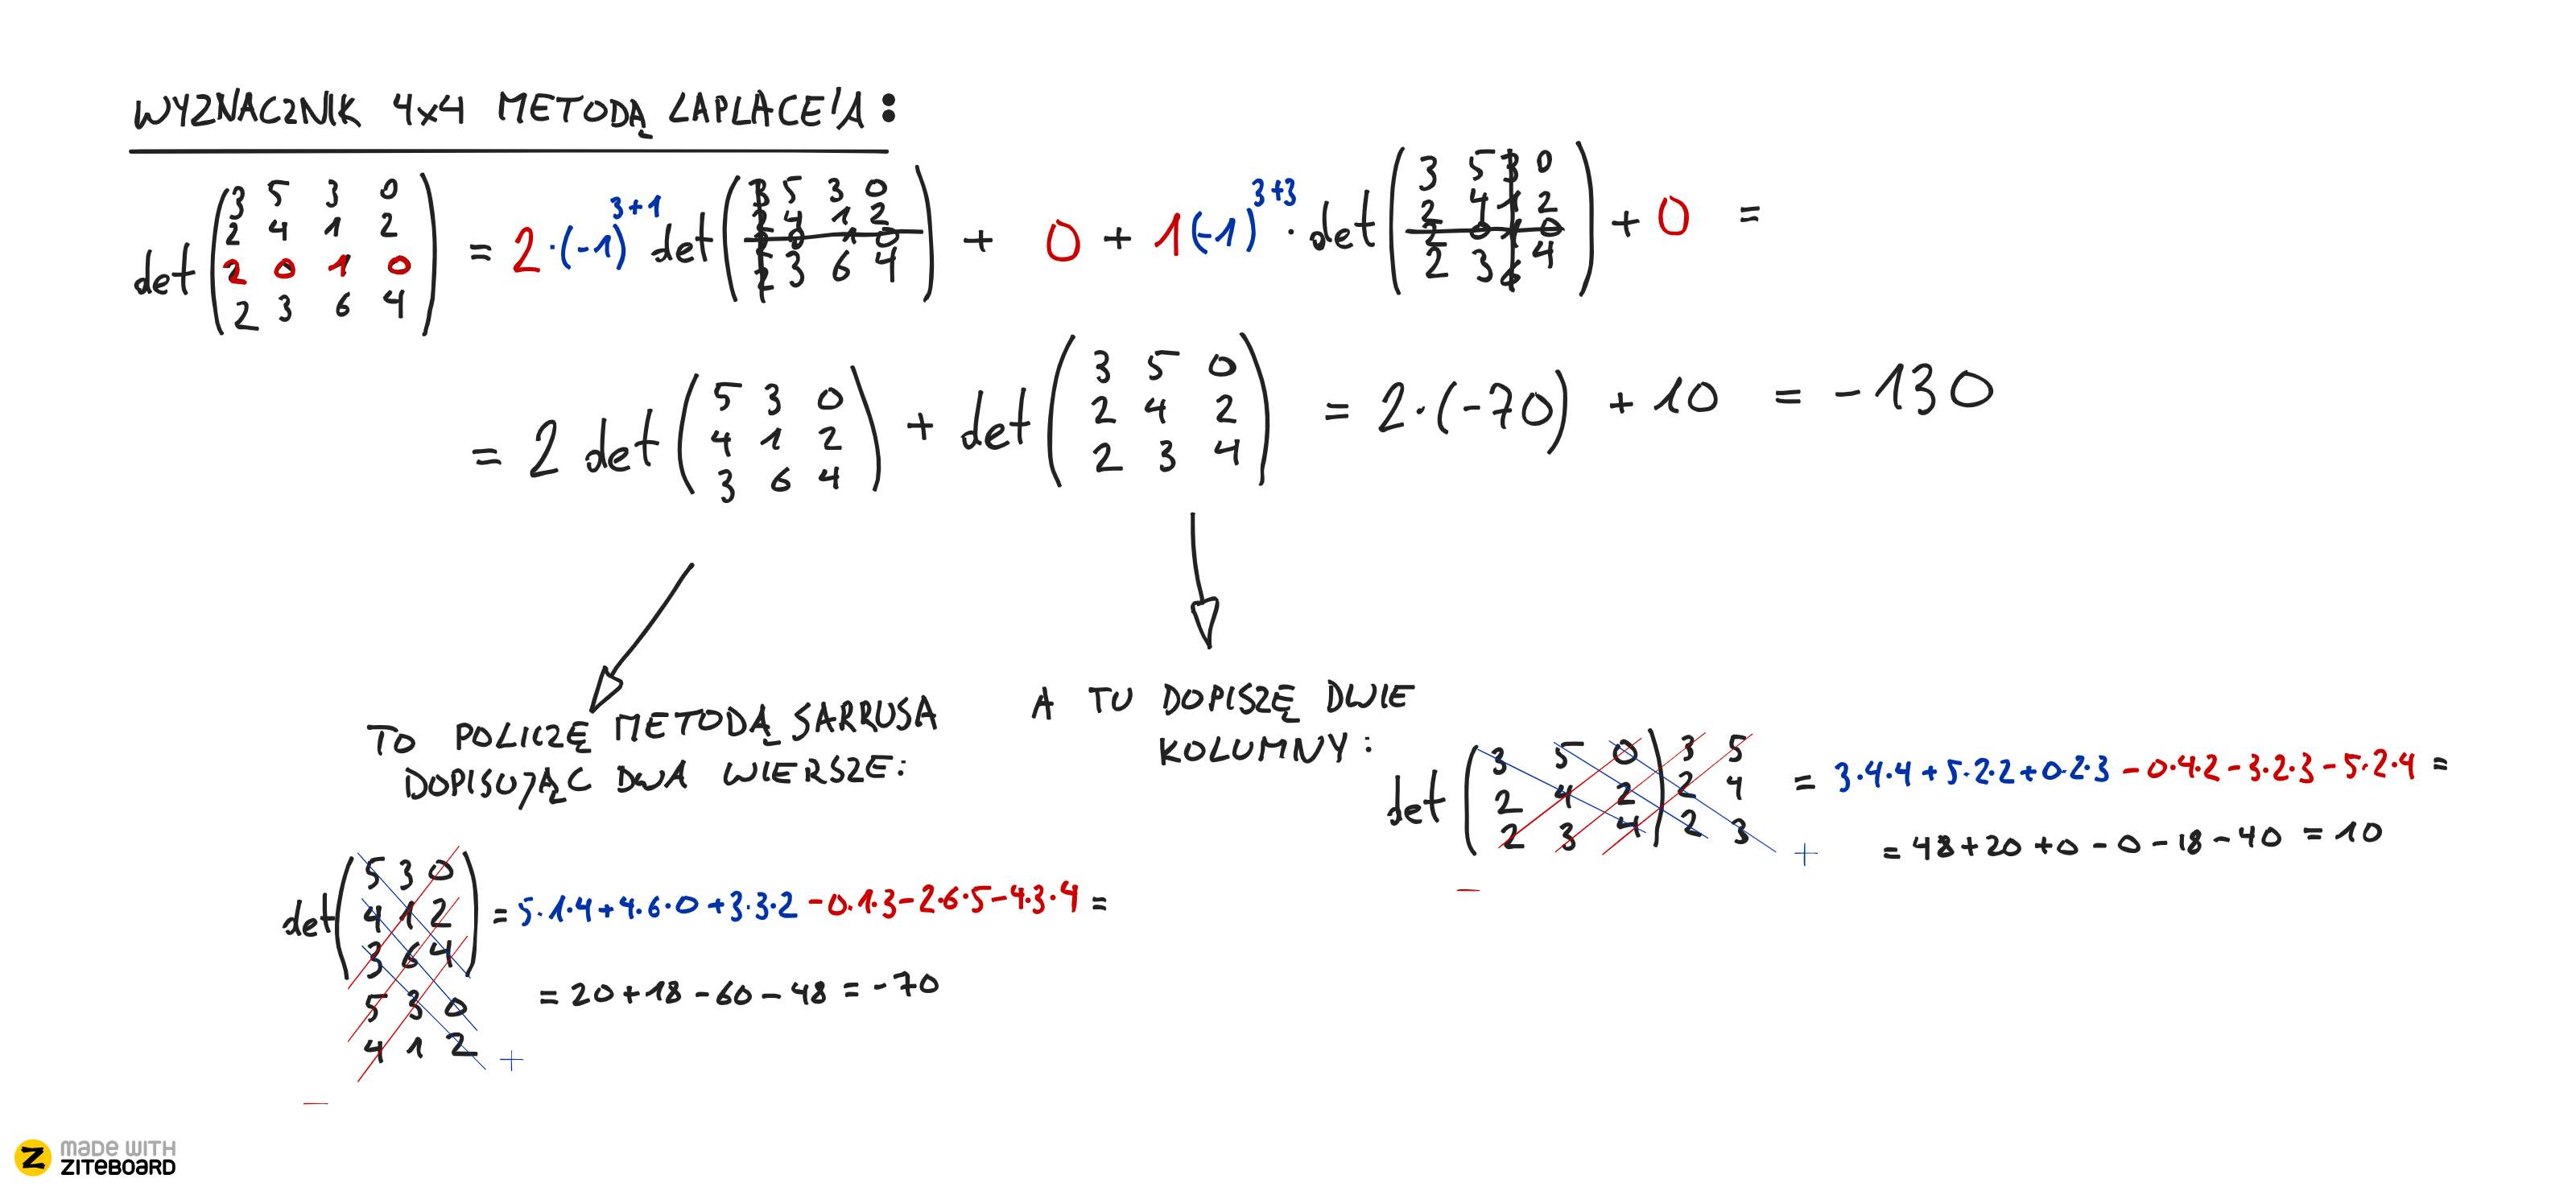 WYZNACZNIK 4x4 METODĄ LAPLACE'A:
det (3 5 3 0
2 4 1 2
2 0 1 0
2 3 6 4) = 2·(-1)^3+1 det (3 5 3 0
2 4 1 2
2 0 1 0
2 3 6 4) + 0 + 1(-1)^3+3 · det (3 5 3 0
2 4 1 2
2 0 1 0
2 3 6 4) + 0 =
= 2 det (5 3 0
4 1 2
3 6 4) + det (3 5 0
2 4 2
2 3 4) = 2·(-70) + 10 = -130
TO POLICZĘ METODĄ SARRUSA
DOPISUJĄC DWA WIERSZE:
det (5 3 0
4 1 2
3 6 4)
5 3 0
4 1 2
= 5·1·4+4·6·0+3·3·2-0·1·3-2·6·5-4·3·4 =
= 20+18-60-48 = -70
- +
A TU DOPISZĘ DWIE
KOLUMNY:
det (3 5 0) 3 5
(2 4 2) 2 4
(2 3 4) 2 3
= 3·4·4+5·2·2+0·2·3-0·4·2-3·2·3-5·2·4 =
= 48+20+0-0-18-40 = 10
- +
MADE WITH
ZITEBOARD